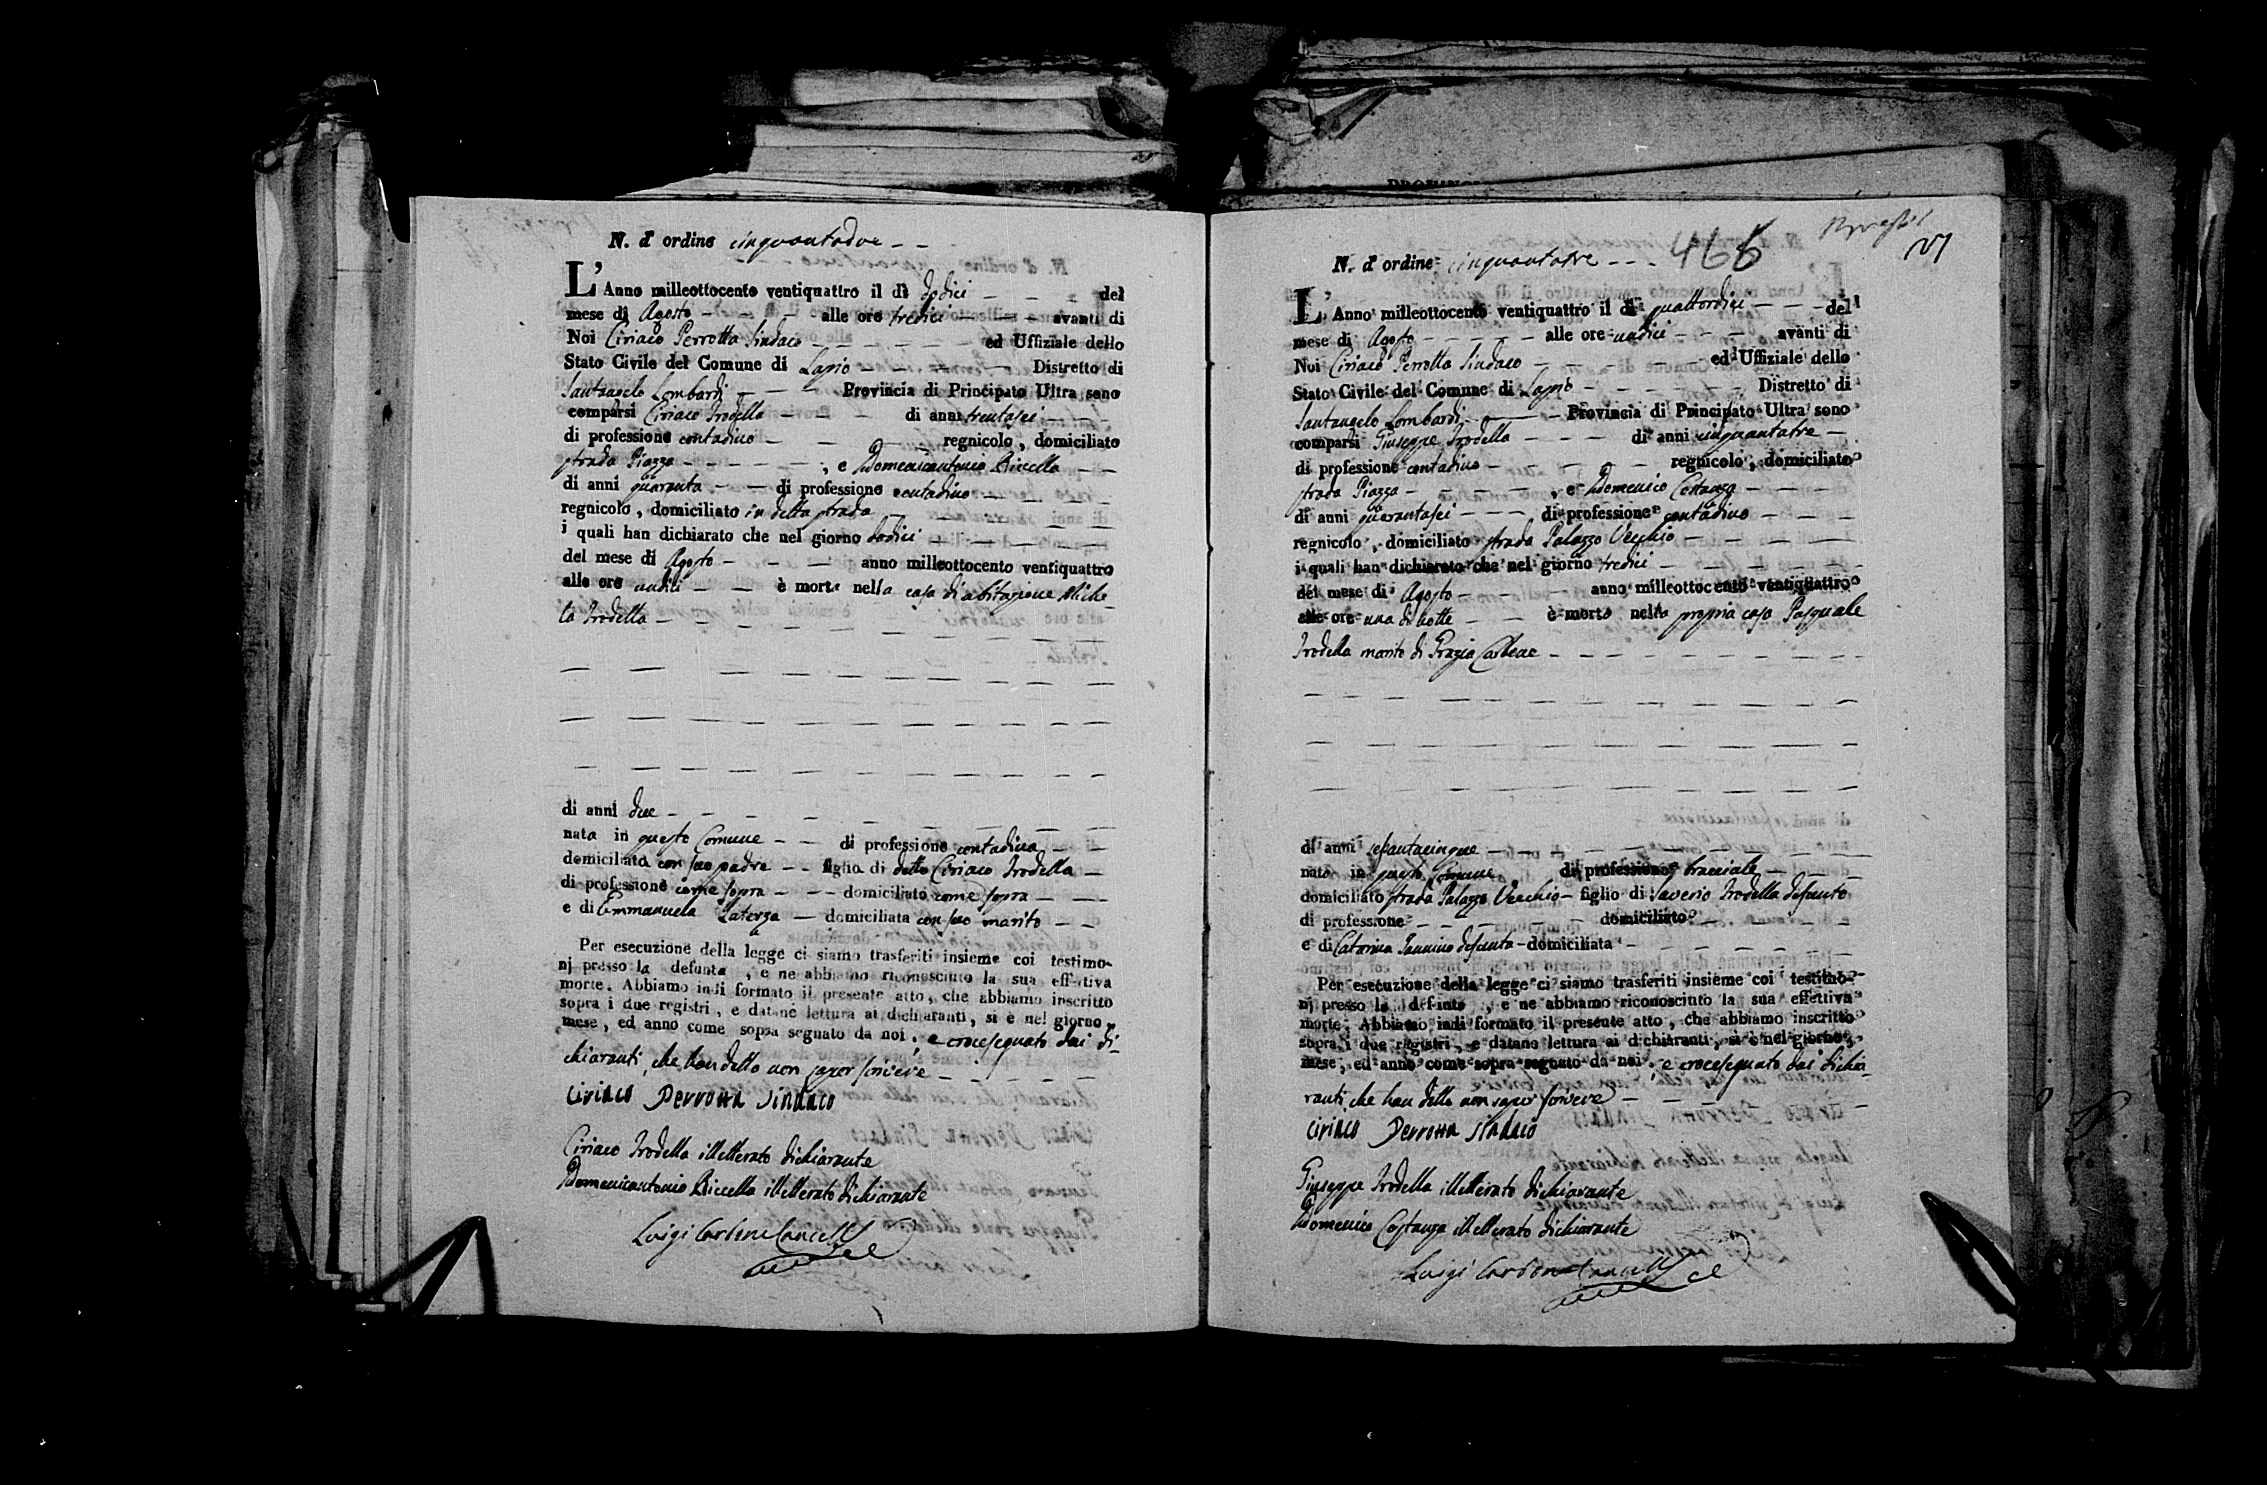 N. d' ordine cinquantadue
L'Anno milleottocento ventiquattro il dì dodici del
mese di Agosto alle ore tredici avanti di
Noi Ciriaco Perrotta Sindaco ed Uffiziale dello
Stato Civile del Comune di Lapio Distretto di
Santangelo Lombardi Provincia di Principato Ultra sono
comparsi Ciriaco Trodella di anni trentasei
di professione contadino regnicolo, domiciliato
strada Piazza, e Domenicantonio Riccella
di anni quaranta di professione contadino
regnicolo, domiciliato in detta strada
i quali han dichiarato che nel giorno dodici
del mese di Agosto anno milleottocento ventiquattro
alle ore undici è morta nella casa di abitazione Miche-
la Trodella
di anni due
nata in questo Comune di professione contadina
domiciliata con suo padre figlia di detto Ciriaco Trodella
di professione come sopra domiciliato come sopra
e di Emmanuela Laterza domiciliata con suo marito
Per esecuzione della legge ci siamo trasferiti insieme coi testimo-
nj presso la defunta, e ne abbiamo riconosciuto la sua effettiva
morte. Abbiamo indi formato il presente atto, che abbiamo inscritto
sopra i due registri, e datane lettura ai dichiaranti, si è nel giorno,
mese, ed anno come sopra segnato da noi, e crocesegnato dai di-
chiaranti, che han detto non saper scrivere
Ciriaco Perrotta Sindaco
Ciriaco Trodella illetterato dichiarante
Domenicantonio Riccella illetterato dichiarante
Luigi Carbone Cancell
466
N. d' ordine cinquantatre
L'Anno milleottocento ventiquattro il dì quattordici del
mese di Agosto alle ore undici avanti di
Noi Ciriaco Perrotta Sindaco ed Uffiziale dello
Stato Civile del Comune di Lapio Distretto di
Santangelo Lombardi Provincia di Principato Ultra sono
comparsi Giuseppe Trodella di anni cinquantatre
di professione contadino regnicolo, domiciliato
strada Piazza, e Domenico Costanza
di anni quarantasei di professione contadino
regnicolo, domiciliato strada Palazzo Vecchio
i quali han dichiarato che nel giorno tredici
del mese di Agosto anno milleottocento ventiquattro
alle ore una di notte è morto nella propria casa Pasquale
Trodella marito di Grazia Carbone
di anni sessantacinque
nato in questo Comune di professione bracciale
domiciliato strada Palazzo Vecchio figlio di Saverio Trodella defunto
di professione domiciliato
e di Catarina Iannino defunta domiciliata
Per esecuzione della legge ci siamo trasferiti insieme coi testimo-
nj presso la defunto, e ne abbiamo riconosciuto la sua effettiva
morte. Abbiamo indi formato il presente atto, che abbiamo inscritto
sopra i due registri, e datane lettura ai dichiaranti, si è nel giorno,
mese, ed anno come sopra segnato da noi, e crocesegnato dai dichia-
ranti, che han detto non saper scrivere
Ciriaco Perrotta Sindaco
Giuseppe Trodella illetterato dichiarante
Domenico Costanza illetterato dichiarante
Luigi Carbone Cancell